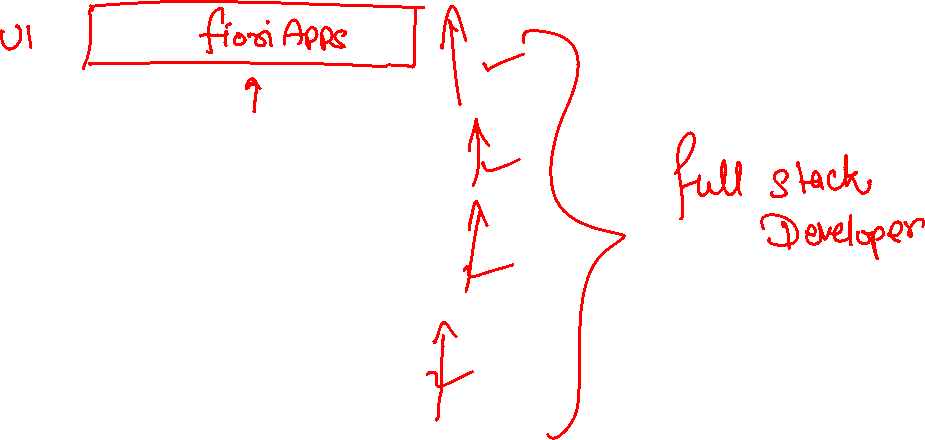 UI
fiori Apps
full stack
Developer